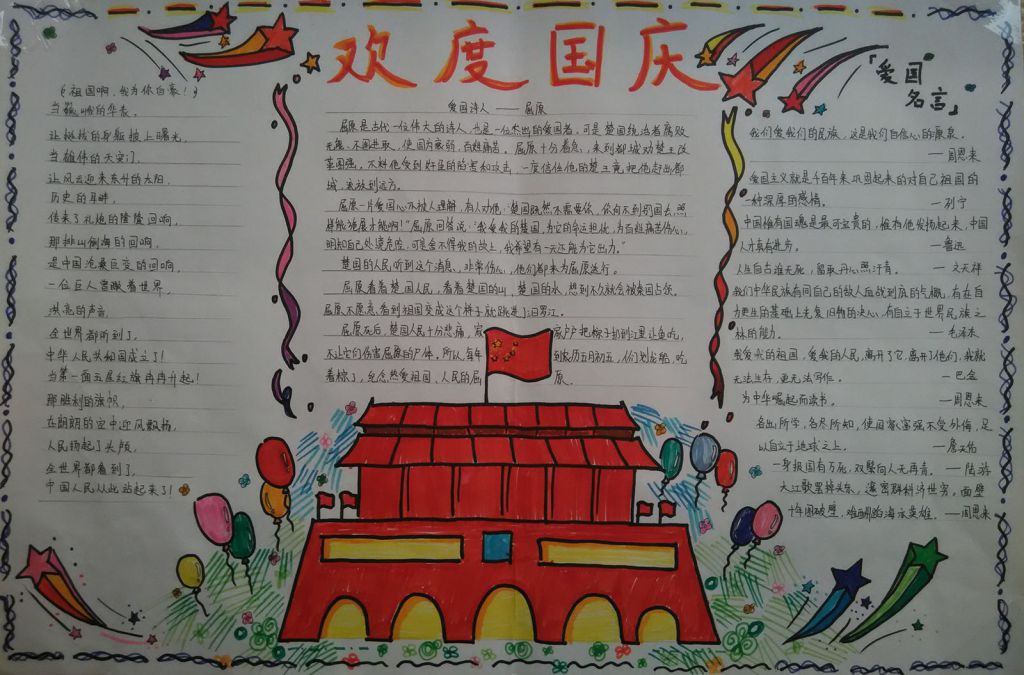 欢度国庆
《祖国啊,我为你自豪!》
当巍峨的华表,
让挺拔的身躯披上曙光,
当雄伟的天安门,
让风云迎来东升的太阳,
历史的耳畔,
传来了礼炮的隆隆回响,
那排山倒海的回响,
是中国沧桑巨变的回响,
一位巨人俯瞰着世界,
洪亮的声音,
全世界都听到了,
中华人民共和国成立了!
当第一面五星红旗冉冉升起!
那胜利的旗帜,
在朗朗的空中迎风飘扬,
人民扬起了头颅,
全世界都看到了,
中国人民从此站起来了!
爱国诗人——屈原
屈原是古代一位伟大的诗人,也是一位杰出的爱国者,可是楚国统治者腐败
无能,不图进取,使国力衰弱,百姓痛苦。屈原十分着急,来到都城劝楚王改
革图强,不料他受到奸臣的陷害和攻击,一度信任他的楚王竟把他赶出都
城,流放到远方。
屈原一片爱国心不被人理解,有人劝他:“楚国既然不需要你,你何不到别国去,照
样能施展才能啊!”屈原回答说:“我爱我的楚国,为它的命运担忧,为百姓痛苦伤心,
明知自己处境危险,可是舍不得我的故土,我希望有一天还能为它出力。”
楚国的人民听到这个消息,非常伤心,他们都来为屈原送行。
屈原看着楚国人民,看着楚国的山,楚国的水,想到不久就会被秦国占领。
屈原不愿意看到祖国变成这个样子就跳进了汨罗江。
屈原死后,楚国人民十分悲痛,家家户户把粽子扔到江里让鱼吃,
不让它们伤害屈原的尸体。所以,每年到农历五月初五,人们划龙船,吃
着粽子,纪念热爱祖国、人民的屈原。
「爱国
名言」
我们爱我们的民族,这是我们自信心的源泉。
—周恩来
爱国主义就是千百年来巩固起来的对自己祖国的
一种深厚的感情。 —列宁
中国惟有国魂是最可宝贵的,惟有他发扬起来,中国
人才有进步。 —鲁迅
人生自古谁无死,留取丹心照汗青。 —文天祥
我们中华民族有同自己的敌人血战到底的气概,有在自
力更生的基础上光复旧物的决心,有自立于世界民族之
林的能力。 —毛泽东
我爱我的祖国,爱我的人民,离开了它,离开了他们,我就
无法生存,更无法写作。 —巴金
为中华崛起而读书。 —周恩来
各出所学,各尽所知,使国家富强不受外侮,足
以自立于地球之上。 —詹天佑
一身报国有万死,双鬓向人无再青。—陆游
大江歌罢掉头东,邃密群科济世穷。面壁
十年图破壁,难酬蹈海亦英雄。—周恩来